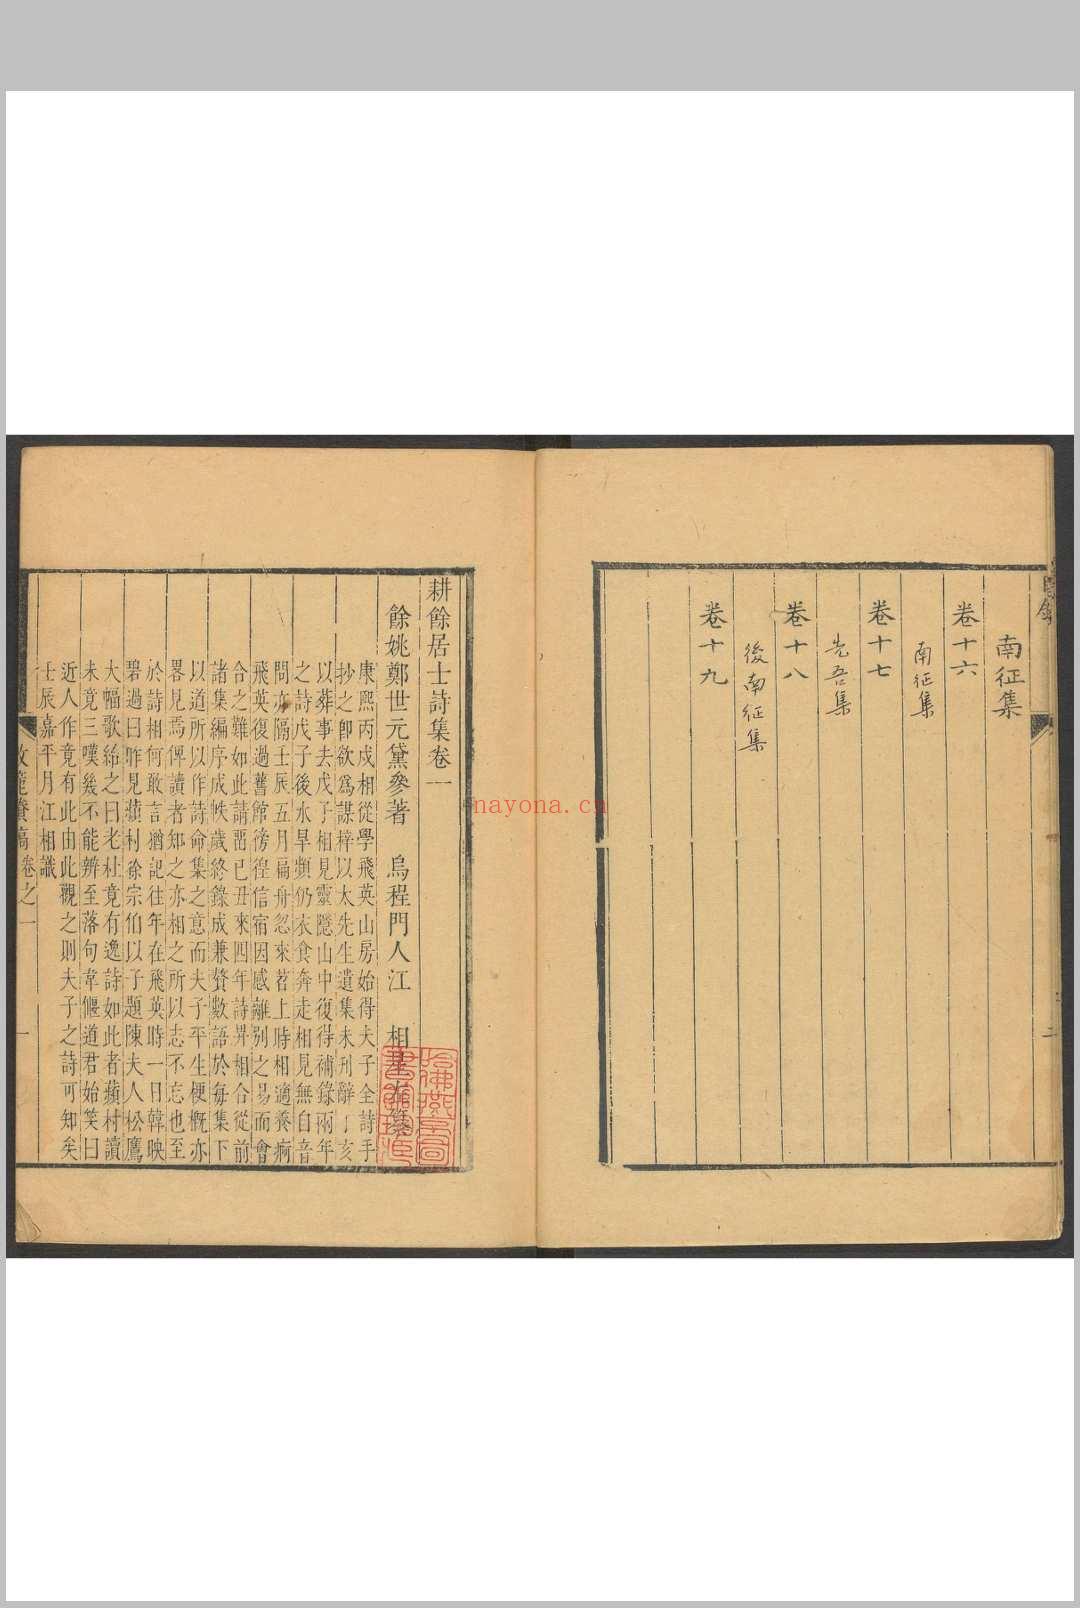 南征集
卷十六
南征集
卷十七
先吾集
卷十八
後南征集
卷十九
耕餘居士詩集卷一
餘姚鄭世元黛參著 烏程門人江 相
康熙丙戌相從學飛英山房始得夫子全詩手
抄之卽欲爲謀梓以太先生遺集未刋辭丁亥
以葬事去戊子相見靈隱山中復得補錄兩年
之詩戊子後水旱頻仍衣食奔走相見無自音
問亦隔壬辰五月扁舟忽來苕上時相適養痾
飛英復過舊館徬徨信宿因感離别之易而會
合之難如此請畱已丑來四年詩畀相合從前
諸集編序成帙歲終錄成兼贅數語於每集下
以道所以作詩命集之意而夫子平生梗概亦
畧見焉俾讀者知之亦相之所以志不忘也至
於詩相何敢言猶記往年在飛英時一日韓映
碧過曰昨見蘋村徐宗伯以子題陳夫人松鷹
大幅歌紿之曰老杜竟有逸詩如此者蘋村讀
未竟三嘆幾不能辨至落句韋偃道君始笑曰
近人作竟有此由此觀之則夫子之詩可知矣
壬辰嘉平月江相識
卷之一
一
nayona.cn